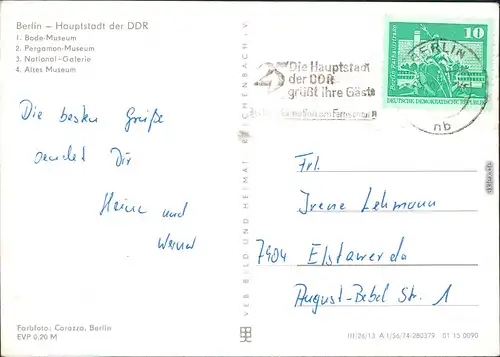 Berlin – Hauptstadt der DDR
1. Bode-Museum
2. Pergamon-Museum
3. National-Galerie
4. Altes Museum
Die besten Grüße
sendet Dir
Heinz und
Werner
Farbfoto: Corazza, Berlin
EVP 0,20 M
VEB BILD UND HEIMAT REICHENBACH i. V.
Die Hauptstadt
der DDR
grüßt ihre Gäste
am Fernsehturm
10
DEUTSCHE DEMOKRATISCHE REPUBLIK
BERLIN
nb
Frl.
Irene Lehmann
7904 Elstawerda
August-Bebel Str. 1
III/26/13 A 1/56/74-280379 01 15 0090